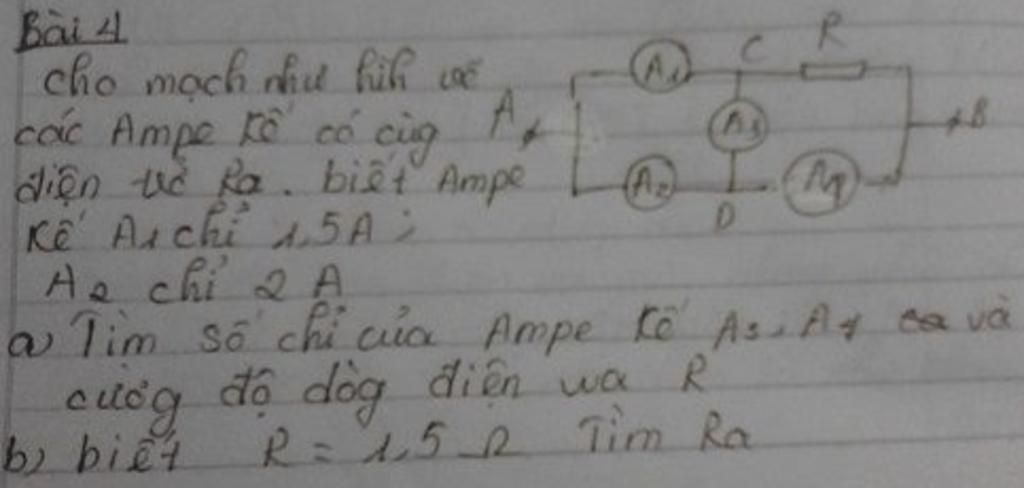 Bài 4
cho mạch như hìh vẽ
các Ampe kế có cùg
điện trở Ra. biết Ampe
kế A1 chỉ 1,5A ;
A2 chỉ 2 A
a) Tìm số chỉ của Ampe kế A3, A4 và
cườg độ dòg điện wa R
b) biết R = 1,5 Ω Tìm Ra
A A1 C R
A3 B
A2 D A4